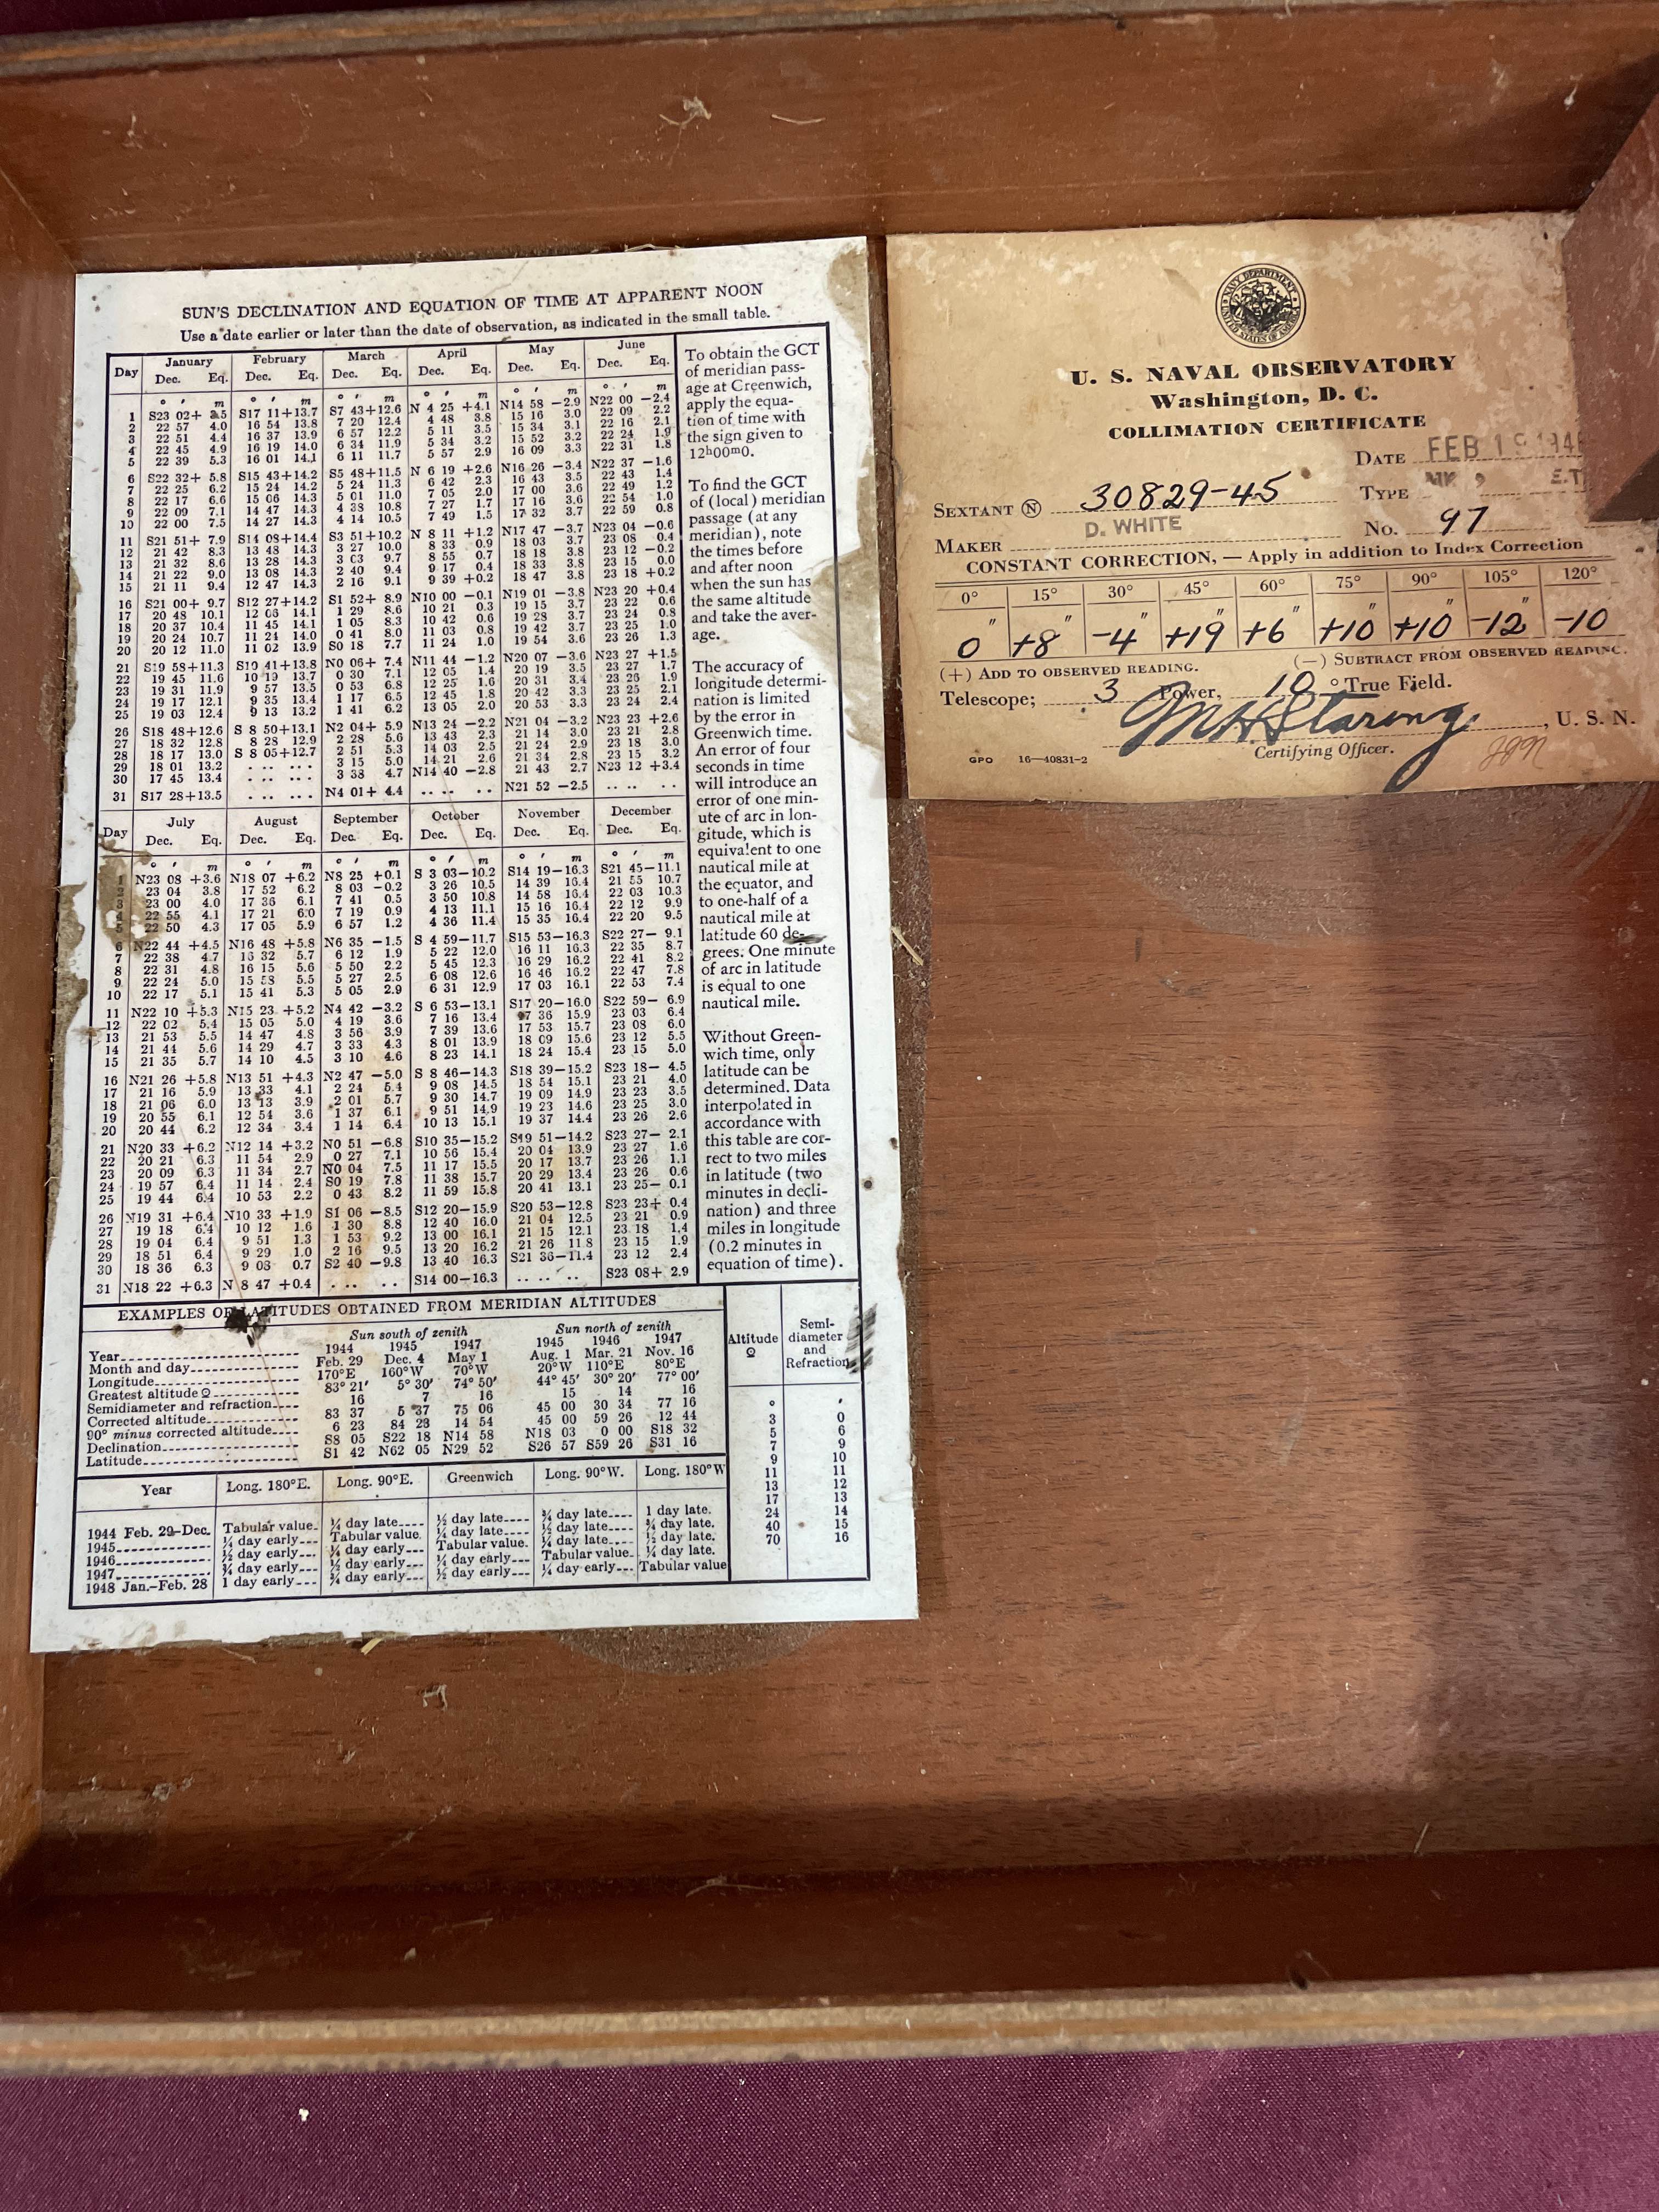 SUN'S DECLINATION AND EQUATION OF TIME AT APPARENT NOON
Use a date earlier or later than the date of observation, as indicated in the small table.
Day January February March April May June
Dec. Eq. Dec. Eq. Dec. Eq. Dec. Eq. Dec. Eq. Dec. Eq.
° ′ m ° ′ m ° ′ m ° ′ m ° ′ m ° ′ m
1 S23 02+ 3.5 S17 11+13.7 S7 43+12.6 N 4 25 +4.1 N14 58 −2.9 N22 00 −2.4
2 22 57 4.0 16 54 13.8 7 20 12.4 4 48 3.8 15 16 3.0 22 09 2.2
3 22 51 4.4 16 37 13.9 6 57 12.2 5 11 3.5 15 34 3.1 22 16 2.1
4 22 45 4.9 16 19 14.0 6 34 11.9 5 34 3.2 15 52 3.2 22 24 1.9
5 22 39 5.3 16 01 14.1 6 11 11.7 5 57 2.9 16 09 3.3 22 31 1.8
6 S22 32+ 5.8 S15 43+14.2 S5 48+11.5 N 6 19 +2.6 N16 26 −3.4 N22 37 −1.6
7 22 25 6.2 15 24 14.2 5 24 11.3 6 42 2.3 16 43 3.5 22 43 1.4
8 22 17 6.6 15 06 14.3 5 01 11.0 7 05 2.0 17 00 3.6 22 49 1.2
9 22 09 7.1 14 47 14.3 4 38 10.8 7 27 1.7 17 16 3.6 22 54 1.0
10 22 00 7.5 14 27 14.3 4 14 10.5 7 49 1.5 17 32 3.7 22 59 0.8
11 S21 51+ 7.9 S14 08+14.4 S3 51+10.2 N 8 11 +1.2 N17 47 −3.7 N23 04 −0.6
12 21 42 8.3 13 48 14.3 3 27 10.0 8 33 0.9 18 03 3.7 23 08 0.4
13 21 32 8.6 13 28 14.3 3 03 9.7 8 55 0.7 18 18 3.8 23 12 −0.2
14 21 22 9.0 13 08 14.3 2 40 9.4 9 17 0.4 18 33 3.8 23 15 0.0
15 21 11 9.4 12 47 14.3 2 16 9.1 9 39 +0.2 18 47 3.8 23 18 +0.2
16 S21 00+ 9.7 S12 27+14.2 S1 52+ 8.9 N10 00 −0.1 N19 01 −3.8 N23 20 +0.4
17 20 48 10.1 12 06 14.1 1 29 8.6 10 21 0.3 19 15 3.7 23 22 0.6
18 20 37 10.4 11 45 14.1 1 05 8.3 10 42 0.6 19 28 3.7 23 24 0.8
19 20 24 10.7 11 24 14.0 0 41 8.0 11 03 0.8 19 42 3.7 23 25 1.0
20 20 12 11.0 11 02 13.9 S0 18 7.7 11 24 1.0 19 54 3.6 23 26 1.3
21 S19 58+11.3 S10 41+13.8 N0 06+ 7.4 N11 44 −1.2 N20 07 −3.6 N23 27 +1.5
22 19 45 11.6 10 19 13.7 0 30 7.1 12 05 1.4 20 19 3.5 23 27 1.7
23 19 31 11.9 9 57 13.5 0 53 6.8 12 25 1.6 20 31 3.4 23 26 1.9
24 19 17 12.1 9 35 13.4 1 17 6.5 12 45 1.8 20 42 3.3 23 25 2.1
25 19 03 12.4 9 13 13.2 1 41 6.2 13 05 2.0 20 53 3.3 23 24 2.4
26 S18 48+12.6 S 8 50+13.1 N2 04+ 5.9 N13 24 −2.2 N21 04 −3.2 N23 23 +2.6
27 18 32 12.8 8 28 12.9 2 28 5.6 13 43 2.3 21 14 3.0 23 21 2.8
28 18 17 13.0 S 8 05+12.7 2 51 5.3 14 03 2.5 21 24 2.9 23 18 3.0
29 18 01 13.2 .. .. ... 3 15 5.0 14 21 2.6 21 34 2.8 23 15 3.2
30 17 45 13.4 .. .. ... 3 38 4.7 N14 40 −2.8 21 43 2.7 N23 12 +3.4
31 S17 28+13.5 .. .. ... N4 01+ 4.4 .. .. .. N21 52 −2.5 .. .. ..
Day July August September October November December
Dec. Eq. Dec. Eq. Dec. Eq. Dec. Eq. Dec. Eq. Dec. Eq.
° ′ m ° ′ m ° ′ m ° ′ m ° ′ m ° ′ m
1 N23 08 +3.6 N18 07 +6.2 N8 25 +0.1 S 3 03−10.2 S14 19−16.3 S21 45−11.1
2 23 04 3.8 17 52 6.2 8 03 −0.2 3 26 10.5 14 39 16.4 21 55 10.7
3 23 00 4.0 17 36 6.1 7 41 0.5 3 50 10.8 14 58 16.4 22 03 10.3
4 22 55 4.1 17 21 6.0 7 19 0.9 4 13 11.1 15 16 16.4 22 12 9.9
5 22 50 4.3 17 05 5.9 6 57 1.2 4 36 11.4 15 35 16.4 22 20 9.5
6 N22 44 +4.5 N16 48 +5.8 N6 35 −1.5 S 4 59−11.7 S15 53−16.3 S22 27− 9.1
7 22 38 4.7 16 32 5.7 6 12 1.9 5 22 12.0 16 11 16.3 22 35 8.7
8 22 31 4.8 16 15 5.6 5 50 2.2 5 45 12.3 16 29 16.2 22 41 8.2
9 22 24 5.0 15 58 5.5 5 27 2.5 6 08 12.6 16 46 16.2 22 47 7.8
10 22 17 5.1 15 41 5.3 5 05 2.9 6 31 12.9 17 03 16.1 22 53 7.4
11 N22 10 +5.3 N15 23 +5.2 N4 42 −3.2 S 6 53−13.1 S17 20−16.0 S22 59− 6.9
12 22 02 5.4 15 05 5.0 4 19 3.6 7 16 13.4 17 36 15.9 23 03 6.4
13 21 53 5.5 14 47 4.8 3 56 3.9 7 39 13.6 17 53 15.7 23 08 6.0
14 21 44 5.6 14 29 4.7 3 33 4.3 8 01 13.9 18 09 15.6 23 12 5.5
15 21 35 5.7 14 10 4.5 3 10 4.6 8 23 14.1 18 24 15.4 23 15 5.0
16 N21 26 +5.8 N13 51 +4.3 N2 47 −5.0 S 8 46−14.3 S18 39−15.2 S23 18− 4.5
17 21 16 5.9 13 33 4.1 2 24 5.4 9 08 14.5 18 54 15.1 23 21 4.0
18 21 06 6.0 13 13 3.9 2 01 5.7 9 30 14.7 19 09 14.9 23 23 3.5
19 20 55 6.1 12 54 3.6 1 37 6.1 9 51 14.9 19 23 14.6 23 25 3.0
20 20 44 6.2 12 34 3.4 1 14 6.4 10 13 15.1 19 37 14.4 23 26 2.6
21 N20 33 +6.2 N12 14 +3.2 N0 51 −6.8 S10 35−15.2 S19 51−14.2 S23 27− 2.1
22 20 21 6.3 11 54 2.9 0 27 7.1 10 56 15.4 20 04 13.9 23 27 1.6
23 20 09 6.3 11 34 2.7 N0 04 7.5 11 17 15.5 20 17 13.7 23 26 1.1
24 19 57 6.4 11 14 2.4 S0 19 7.8 11 38 15.7 20 29 13.4 23 26 0.6
25 19 44 6.4 10 53 2.2 0 43 8.2 11 59 15.8 20 41 13.1 23 25− 0.1
26 N19 31 +6.4 N10 33 +1.9 S1 06 −8.5 S12 20−15.9 S20 53−12.8 S23 23+ 0.4
27 19 18 6.4 10 12 1.6 1 30 8.8 12 40 16.0 21 04 12.5 23 21 0.9
28 19 04 6.4 9 51 1.3 1 53 9.2 13 00 16.1 21 15 12.1 23 18 1.4
29 18 51 6.4 9 29 1.0 2 16 9.5 13 20 16.2 21 26 11.8 23 15 1.9
30 18 36 6.3 9 08 0.7 S2 40 −9.8 13 40 16.3 S21 36−11.4 23 12 2.4
31 N18 22 +6.3 N 8 47 +0.4 .. .. .. S14 00−16.3 .. .. .. S23 08+ 2.9
To obtain the GCT
of meridian pass-
age at Greenwich,
apply the equa-
tion of time with
the sign given to
12ʰ00ᵐ0.
To find the GCT
of (local) meridian
passage (at any
meridian), note
the times before
and after noon
when the sun has
the same altitude
and take the aver-
age.
The accuracy of
longitude determi-
nation is limited
by the error in
Greenwich time.
An error of four
seconds in time
will introduce an
error of one min-
ute of arc in lon-
gitude, which is
equivalent to one
nautical mile at
the equator, and
to one-half of a
nautical mile at
latitude 60 de-
grees. One minute
of arc in latitude
is equal to one
nautical mile.
Without Green-
wich time, only
latitude can be
determined. Data
interpolated in
accordance with
this table are cor-
rect to two miles
in latitude (two
minutes in decli-
nation) and three
miles in longitude
(0.2 minutes in
equation of time).
EXAMPLES OF LATITUDES OBTAINED FROM MERIDIAN ALTITUDES
Sun south of zenith Sun north of zenith
Year 1944 1945 1947 1945 1946 1947
Month and day Feb. 29 Dec. 4 May 1 Aug. 1 Mar. 21 Nov. 16
Longitude 170°E 160°W 70°W 20°W 110°E 80°E
Greatest altitude ☉ 83° 21′ 5° 30′ 74° 50′ 44° 45′ 30° 20′ 77° 00′
Semidiameter and refraction 16 7 16 15 14 16
Corrected altitude 83 37 5 37 75 06 45 00 30 34 77 16
90° minus corrected altitude 6 23 84 23 14 54 45 00 59 26 12 44
Declination S8 05 S22 18 N14 58 N18 03 0 00 S18 32
Latitude S1 42 N62 05 N29 52 S26 57 S59 26 S31 16
Altitude ☉ Semi-diameter and Refraction
° ′
3 0
5 6
7 9
9 10
11 11
13 12
17 13
24 14
40 15
70 16
Year Long. 180°E. Long. 90°E. Greenwich Long. 90°W. Long. 180°W
1944 Feb. 29–Dec. Tabular value. ¼ day late ½ day late ¾ day late 1 day late.
1945 ¼ day early Tabular value. ¼ day late ½ day late ¾ day late.
1946 ½ day early ¼ day early Tabular value. ¼ day late ½ day late.
1947 ¾ day early ½ day early ¼ day early Tabular value. ¼ day late.
1948 Jan.–Feb. 28 1 day early ¾ day early ½ day early ¼ day early Tabular value
NAVY DEPARTMENT
UNITED STATES OF AMERICA
U. S. NAVAL OBSERVATORY
Washington, D. C.
COLLIMATION CERTIFICATE
DATE FEB 19 194
SEXTANT Ⓝ 30829-45 TYPE MK
MAKER D. WHITE No. 97
CONSTANT CORRECTION, — Apply in addition to Index Correction
0° 15° 30° 45° 60° 75° 90° 105° 120°
0″ +8″ -4″ +19″ +6″ +10″ +10″ -12″ -10
(+) ADD TO OBSERVED READING. (—) SUBTRACT FROM OBSERVED READING.
Telescope; 3 Power, 10 ° True Field.
MH Staring, U. S. N.
Certifying Officer.
GPO 16—40831-2